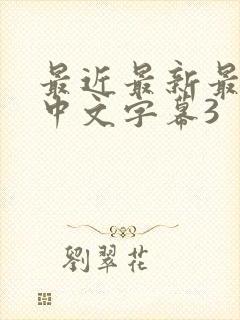 最近最新最
中文字幕3
劉翠花